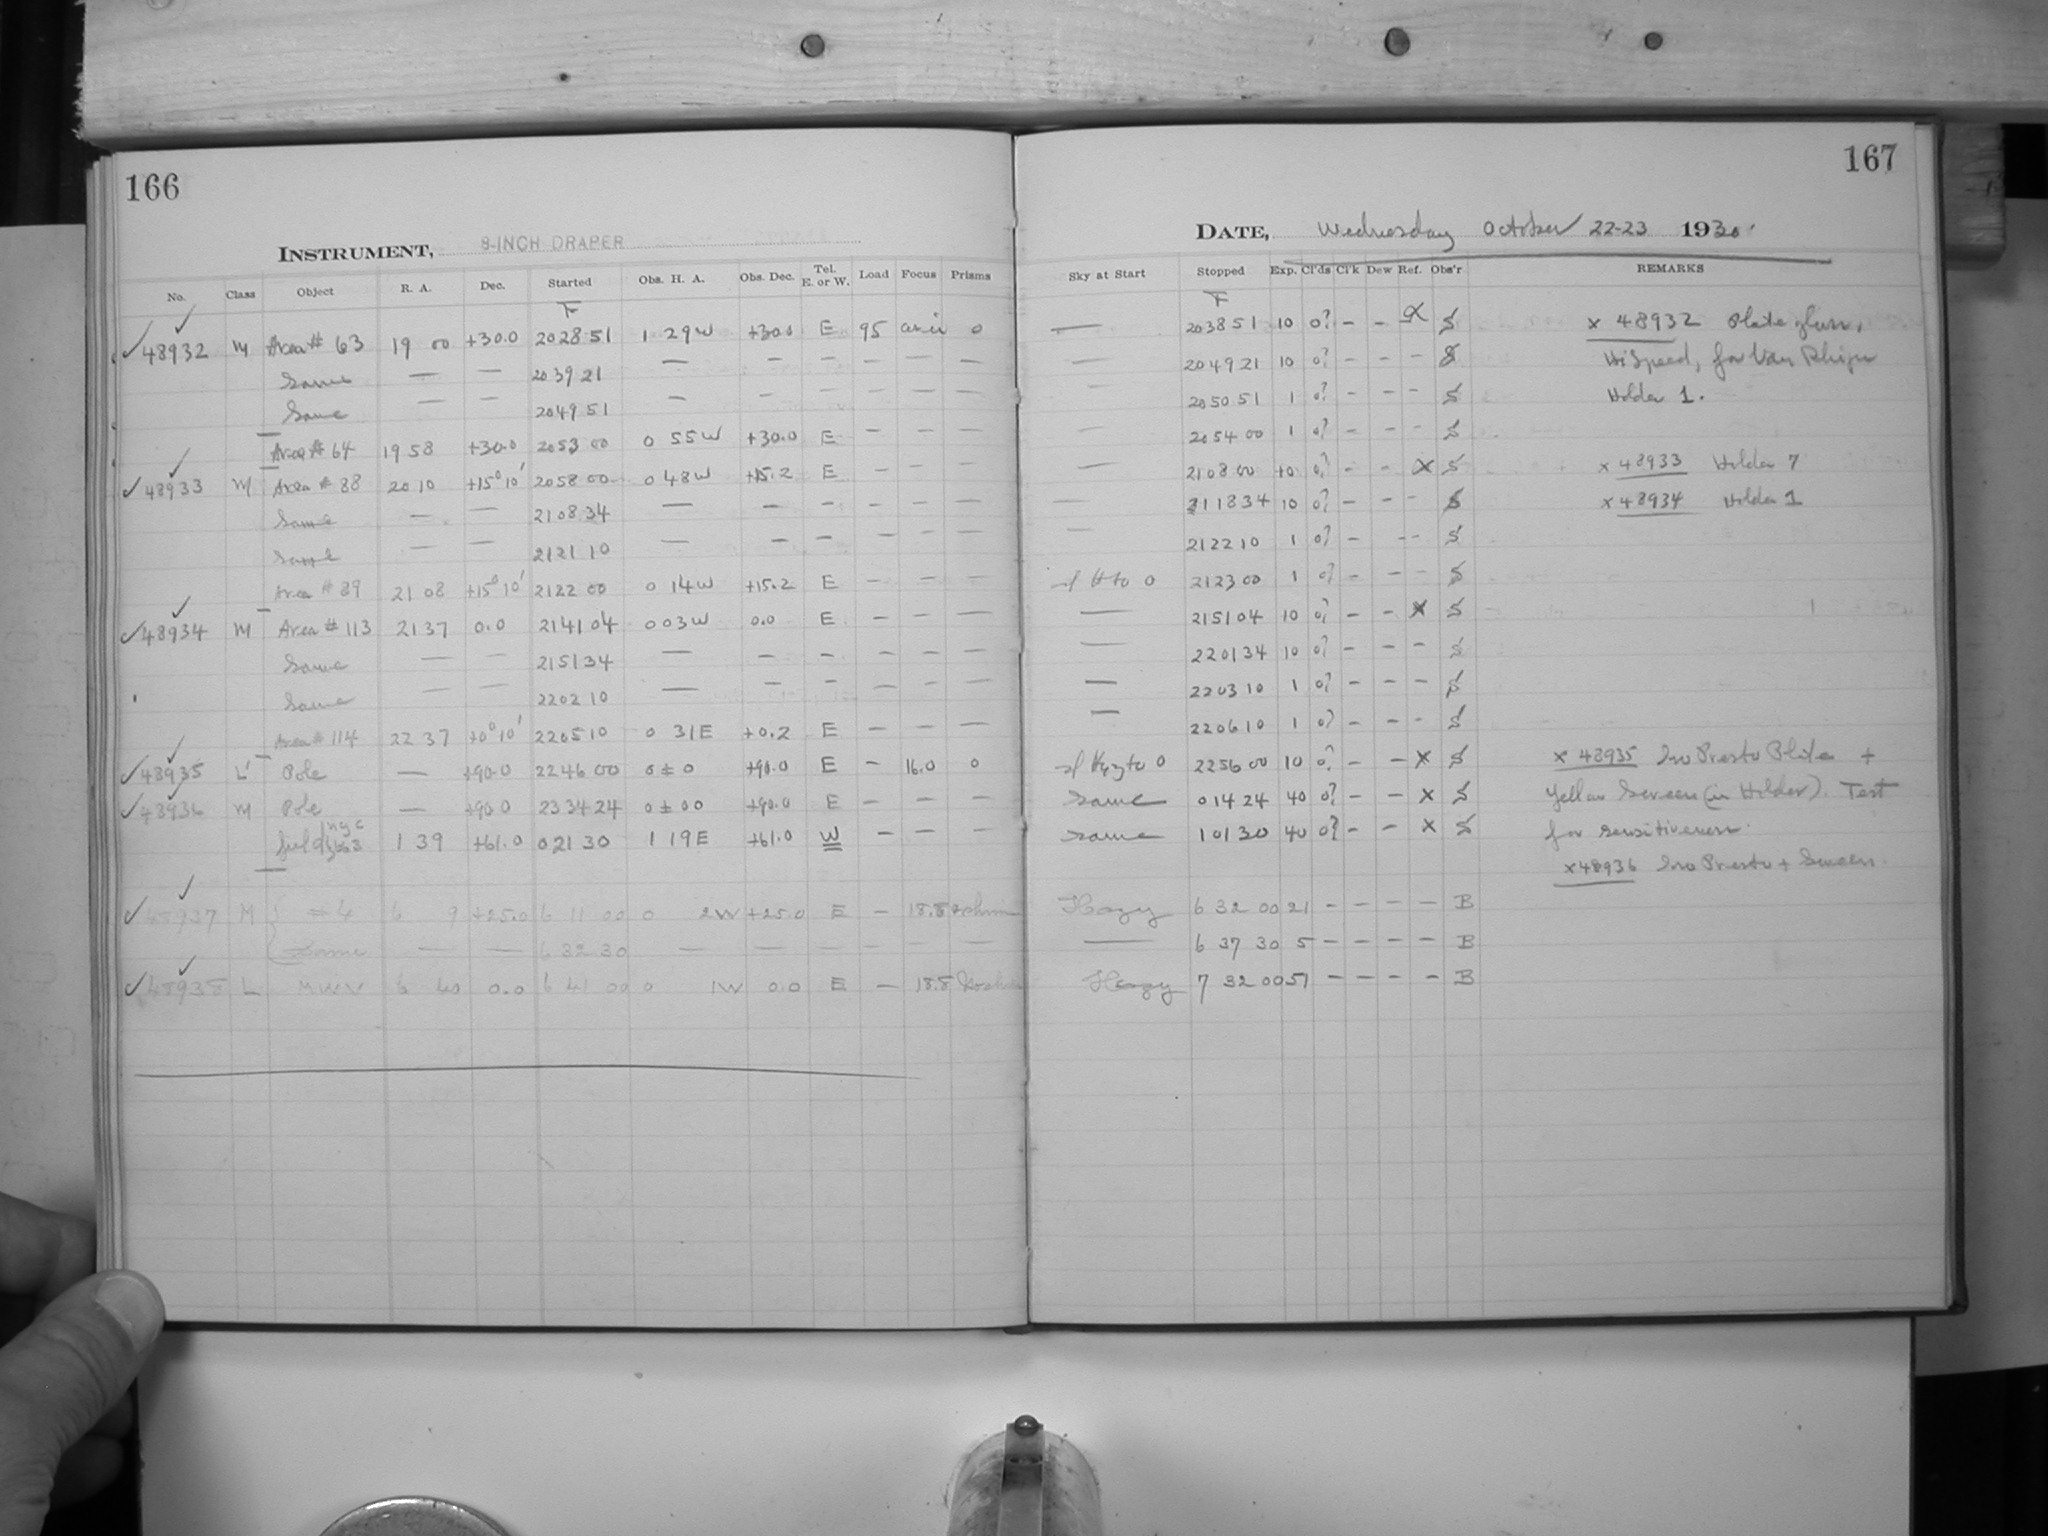 166
INSTRUMENT, 8-INCH DRAPER
No. Class Object R. A. Dec. Started Obs. H. A. Obs. Dec. Tel. E. or W. Load Focus Prisms
48932 M Area # 63 19 00 +30.0 20 28 51 1 29 W +30.0 E 95 0
Same — — 20 39 21 — — — — — —
Same — — 20 49 51 — — — — — —
Area # 64 19 58 +30.0 20 53 00 0 55 W +30.0 E — — —
48933 M Area # 88 20 10 +15° 10' 20 58 00 0 48 W +15.2 E — — —
Same — — 21 08 34 — — — — — —
Same — — 21 21 10 — — — — — —
Area # 89 21 08 +15° 10' 21 22 00 0 14 W +15.2 E — — —
48934 M Area # 113 21 37 0.0 21 41 04 0 03 W 0.0 E — — —
Same — — 21 51 34 — — — — — —
Same — — 22 02 10 — — — — — —
Area # 114 22 37 +0° 10' 22 05 10 0 31 E +0.2 E — — —
48935 L' Pole — +90.0 22 46 00 0 ± 0 +90.0 E — 16.0 0
48936 M Pole — +90.0 23 34 24 0 ± 00 +90.0 E — — —
field 1 39 +61.0 0 21 30 1 19 E +61.0 W — — —
48937 M # 4 6 9 +25.0 6 11 00 0 2 W +25.0 E — 18.8
Same — — 6 32 30 — — — — — —
48938 L MWV 6 40 0.0 6 41 00 0 1 W 0.0 E — 18.8
167
DATE, Wednesday October 22-23 1930.
Sky at Start Stopped Exp. Cl'ds Cl'k Dew Ref. Obs'r REMARKS
— 20 38 51 10 0? — — x S x 48932 Plate glass,
— 20 49 21 10 0? — — — S Hi Speed, for Van Rhijn
— 20 50 51 1 0? — — — S Holder 1.
— 20 54 00 1 0? — — — S
— 21 08 00 10 0? — — x S x 48933 Holder 7
— 21 18 34 10 0? — — — S x 48934 Holder 1
— 21 22 10 1 0? — — — S
21 23 00 1 0? — — — S
— 21 51 04 10 0? — — x S
— 22 01 34 10 0? — — — S
— 22 03 10 1 0? — — — S
— 22 06 10 1 0? — — — S
22 56 00 10 0? — — x S x 48935 Iso Presto Plate +
Same 0 14 24 40 0? — — x S Yellow Screen (in Holder). Test
Same 1 01 30 40 0? — — x S for sensitiveness.
x 48936 Iso Presto + Screen.
Hazy 6 32 00 21 — — — — B
— 6 37 30 5 — — — — B
Hazy 7 32 00 51 — — — — B